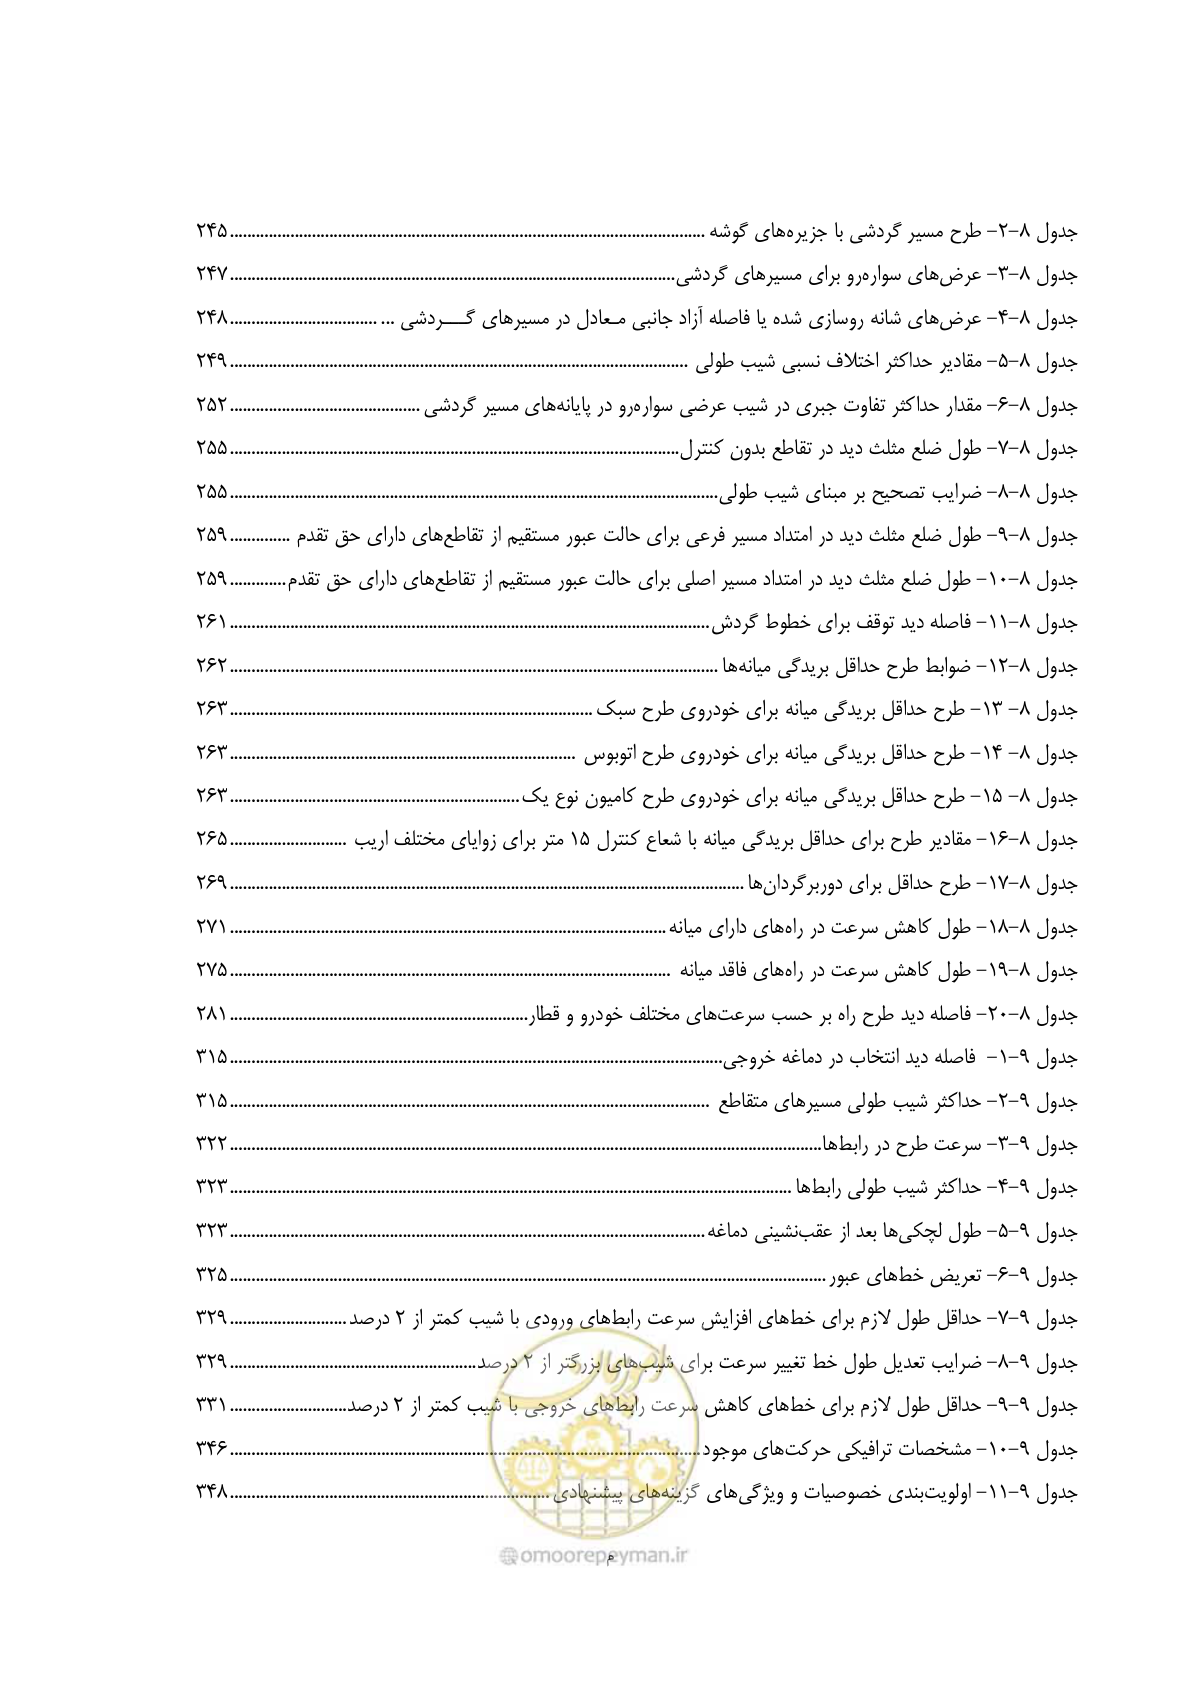 جدول ۸-۲- طرح مسیر گردشی با جزیره‌های گوشه ........ ۲۴۵
جدول ۸-۳- عرض‌های سواره‌رو برای مسیرهای گردشی ........ ۲۴۷
جدول ۸-۴- عرض‌های شانه روسازی شده یا فاصله آزاد جانبی مـعادل در مسیرهای گـــردشی ... ........ ۲۴۸
جدول ۸-۵- مقادیر حداکثر اختلاف نسبی شیب طولی ........ ۲۴۹
جدول ۸-۶- مقدار حداکثر تفاوت جبری در شیب عرضی سواره‌رو در پایانه‌های مسیر گردشی ........ ۲۵۲
جدول ۸-۷- طول ضلع مثلث دید در تقاطع بدون کنترل ........ ۲۵۵
جدول ۸-۸- ضرایب تصحیح بر مبنای شیب طولی ........ ۲۵۵
جدول ۸-۹- طول ضلع مثلث دید در امتداد مسیر فرعی برای حالت عبور مستقیم از تقاطع‌های دارای حق تقدم ........ ۲۵۹
جدول ۸-۱۰- طول ضلع مثلث دید در امتداد مسیر اصلی برای حالت عبور مستقیم از تقاطع‌های دارای حق تقدم ........ ۲۵۹
جدول ۸-۱۱- فاصله دید توقف برای خطوط گردش ........ ۲۶۱
جدول ۸-۱۲- ضوابط طرح حداقل بریدگی میانه‌ها ........ ۲۶۲
جدول ۸- ۱۳- طرح حداقل بریدگی میانه برای خودروی طرح سبک ........ ۲۶۳
جدول ۸- ۱۴- طرح حداقل بریدگی میانه برای خودروی طرح اتوبوس ........ ۲۶۳
جدول ۸- ۱۵- طرح حداقل بریدگی میانه برای خودروی طرح کامیون نوع یک ........ ۲۶۳
جدول ۸-۱۶- مقادیر طرح برای حداقل بریدگی میانه با شعاع کنترل ۱۵ متر برای زوایای مختلف اریب ........ ۲۶۵
جدول ۸-۱۷- طرح حداقل برای دوربرگردان‌ها ........ ۲۶۹
جدول ۸-۱۸- طول کاهش سرعت در راه‌های دارای میانه ........ ۲۷۱
جدول ۸-۱۹- طول کاهش سرعت در راه‌های فاقد میانه ........ ۲۷۵
جدول ۸-۲۰- فاصله دید طرح راه بر حسب سرعت‌های مختلف خودرو و قطار ........ ۲۸۱
جدول ۹-۱- فاصله دید انتخاب در دماغه خروجی ........ ۳۱۵
جدول ۹-۲- حداکثر شیب طولی مسیرهای متقاطع ........ ۳۱۵
جدول ۹-۳- سرعت طرح در رابط‌ها ........ ۳۲۲
جدول ۹-۴- حداکثر شیب طولی رابط‌ها ........ ۳۲۳
جدول ۹-۵- طول لچکی‌ها بعد از عقب‌نشینی دماغه ........ ۳۲۳
جدول ۹-۶- تعریض خط‌های عبور ........ ۳۲۵
جدول ۹-۷- حداقل طول لازم برای خط‌های افزایش سرعت رابط‌های ورودی با شیب کمتر از ۲ درصد ........ ۳۲۹
جدول ۹-۸- ضرایب تعدیل طول خط تغییر سرعت برای شیب‌های بزرگتر از ۲ درصد ........ ۳۲۹
جدول ۹-۹- حداقل طول لازم برای خط‌های کاهش سرعت رابط‌های خروجی با شیب کمتر از ۲ درصد ........ ۳۳۱
جدول ۹-۱۰- مشخصات ترافیکی حرکت‌های موجود ........ ۳۴۶
جدول ۹-۱۱- اولویت‌بندی خصوصیات و ویژگی‌های گزینه‌های پیشنهادی ........ ۳۴۸
امور پیمان
@omoorepeyman.ir
م